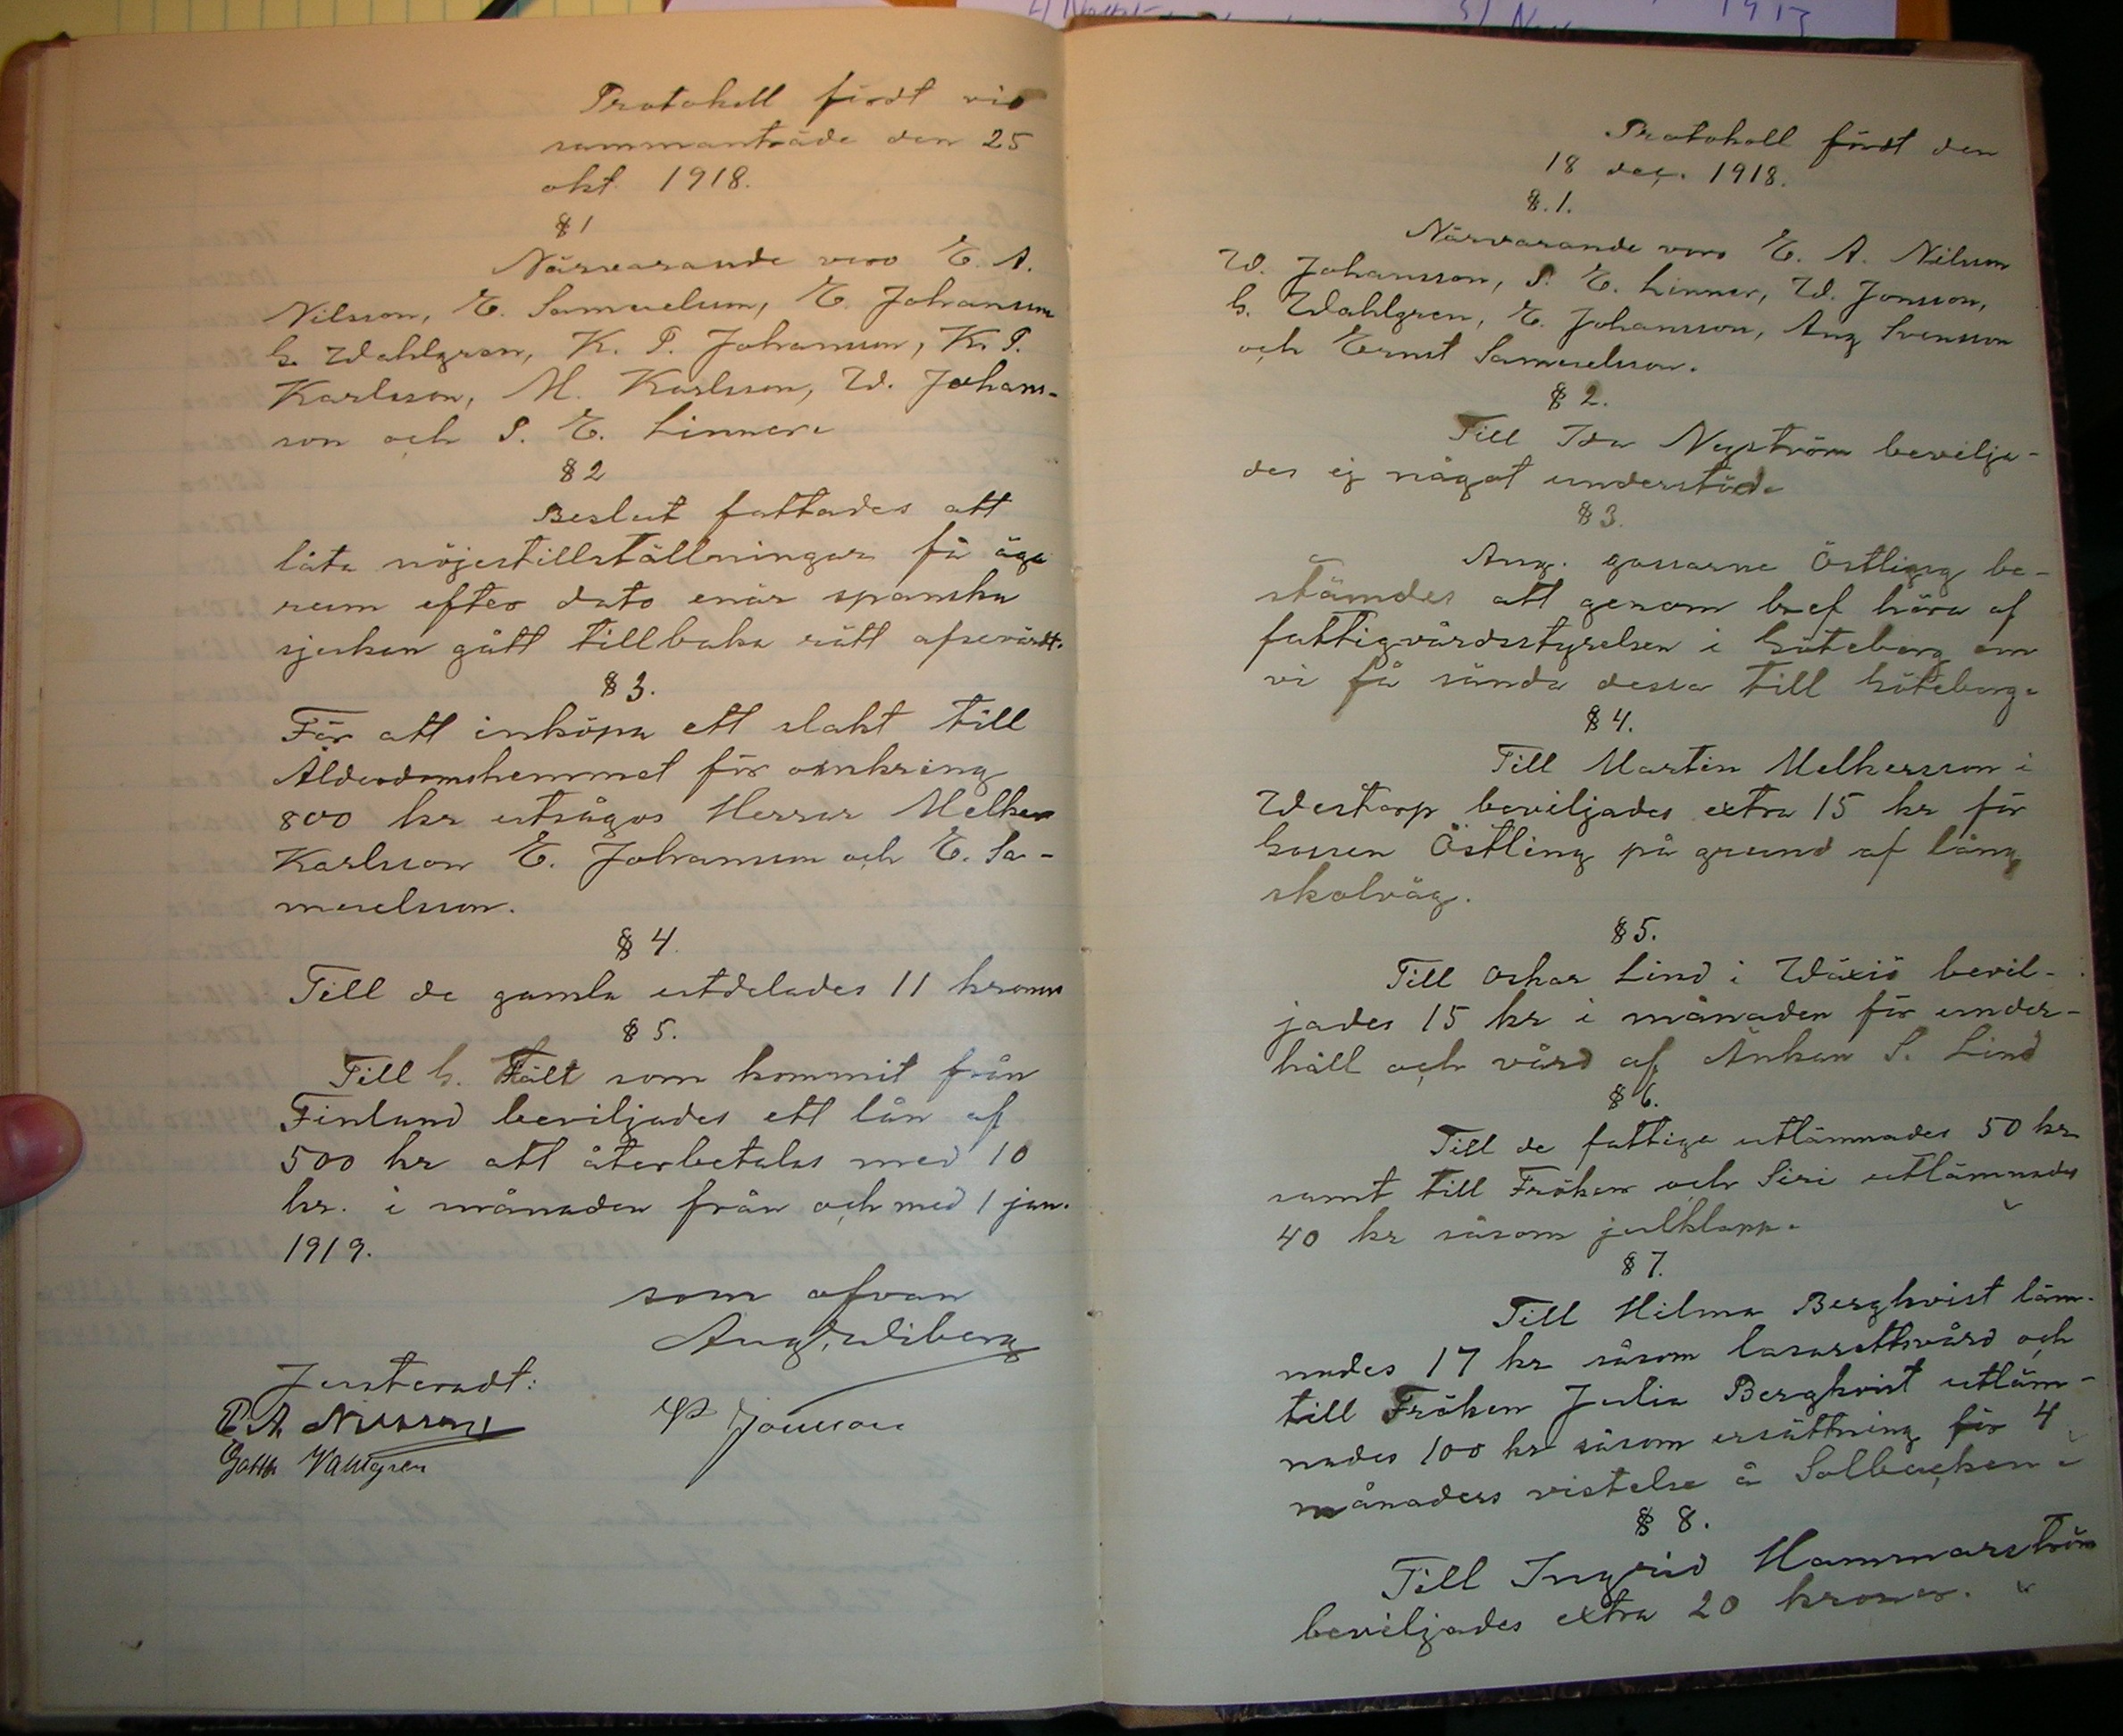 Protokoll fördt vid
sammanträde den 25
okt. 1918.
§ 1
Närvarande voro E. A.
Nilsson, E. Samuelsson, E. Johansson
G. Wahlgren, K. P. Johansson, K. P.
Karlsson, M. Karlsson, W. Johans-
son och P. E. Linner.
§ 2
Beslut fattades att
låta nöjestillställningar få äga
rum efter dato enär spanska
sjukan gått tillbaka rätt afsevärdt.
§ 3.
För att inköpa ett slakt till
Ålderdomshemmet för omkring
800 kr utsågos Herrar Melker
Karlsson E. Johansson och E. Sa-
muelsson.
§ 4.
Till de gamla utdelades 11 kronor
§ 5.
Till G. Fält som kommit från
Finland beviljades ett lån af
500 kr att återbetalas med 10
kr. i månaden från och med 1 jan.
1919.
som ofvan
Aug. Wiberg
Justeradt:
E. A. Nilsson
Jonsson
Gotth Wahlgren
Protokoll fördt den
18 dec. 1918.
§. 1.
Närvarande voro E. A. Nilsson
W. Johansson, P. E. Linner, W. Jonsson,
G. Wahlgren, E. Johansson, Aug Svensson
och Ernst Samuelsson.
§ 2.
Till Ida Nyström bevilja-
des ej något understöd.
§ 3.
Ang. gossarne Östling be-
stämdes att genom bref höra af
fattigvårdsstyrelsen i Göteborg om
vi få sända dessa till Göteborg.
§ 4.
Till Martin Melkersson i
Westorp beviljades extra 15 kr för
Gossen Östling på grund af lång
skolväg.
§ 5.
Till Oskar Lind i Wäxiö bevil-
jades 15 kr i månaden för under-
håll och vård af Änkan S. Lind
§ 6.
Till de fattiga utlämnades 50 kr
samt till Fröken och Siri utlämnades
40 kr såsom julklapp.
§ 7.
Till Hilma Bergkvist läm-
nades 17 kr såsom lasarettsvård och
till Fröken Julia Bergkvist utläm-
nades 100 kr såsom ersättning för 4
månaders vistelse å Solbacken.
§ 8.
Till Ingrid Hammarström
beviljades extra 20 kronor.